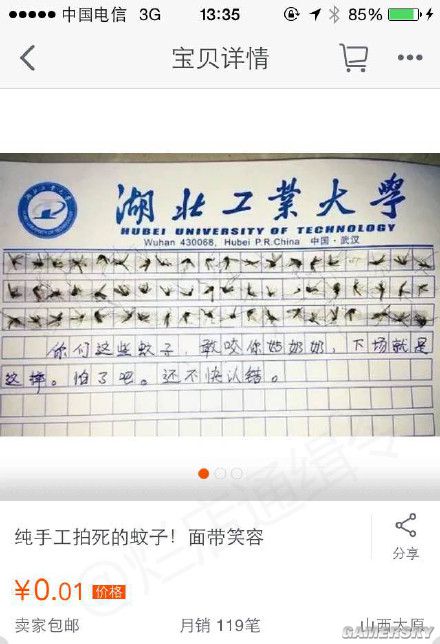 中国电信 3G 13:35 85%
宝贝详情
湖北工業大學
HUBEI UNIVERSITY OF TECHNOLOGY
Wuhan 430068, Hubei P.R.China 中国·武汉
你们这些蚊子，敢咬你姑奶奶，下场就是
这样。怕了吧。还不快认错。
纯手工拍死的蚊子！面带笑容
分享
¥0.01 价格
卖家包邮 月销 119笔 山西太原
@烂店通缉令
GAMERSKY